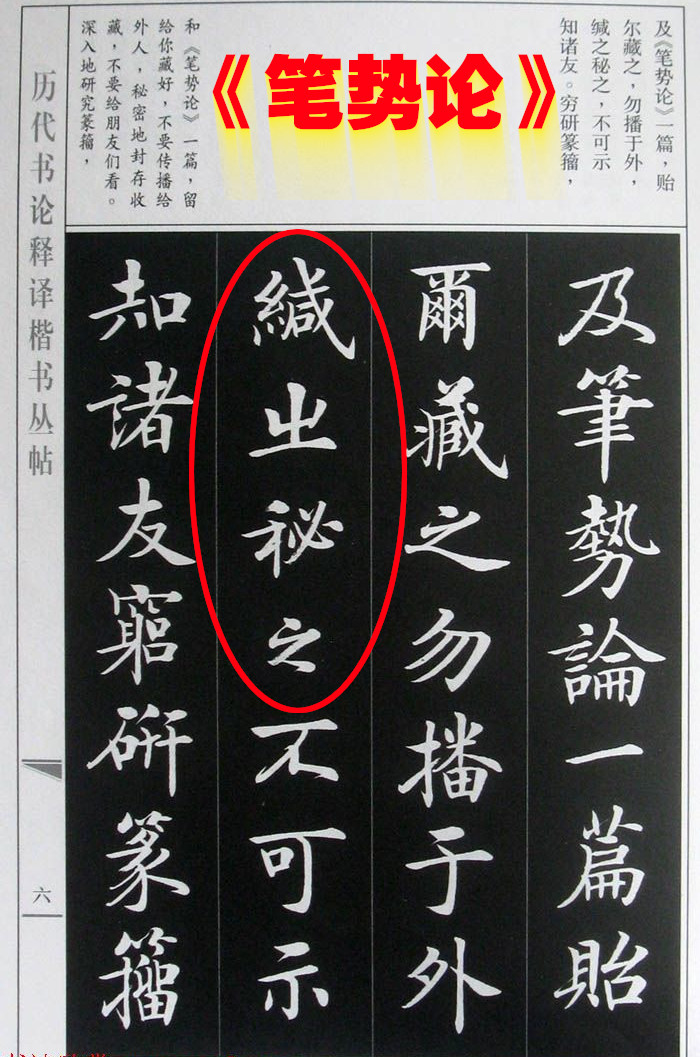 及《笔势论》一篇，贻
尔藏之，勿播于外，
缄之秘之，不可示
知诸友。穷研篆籀，
《笔势论》
和《笔势论》一篇，留
给你藏好，不要传播给
外人，秘密地封存收
藏，不要给朋友们看。
深入地研究篆籀，
及筆勢論一篇貽
爾藏之勿播于外
緘之秘之不可示
知諸友窮研篆籀
历代书论释译楷书丛帖
六